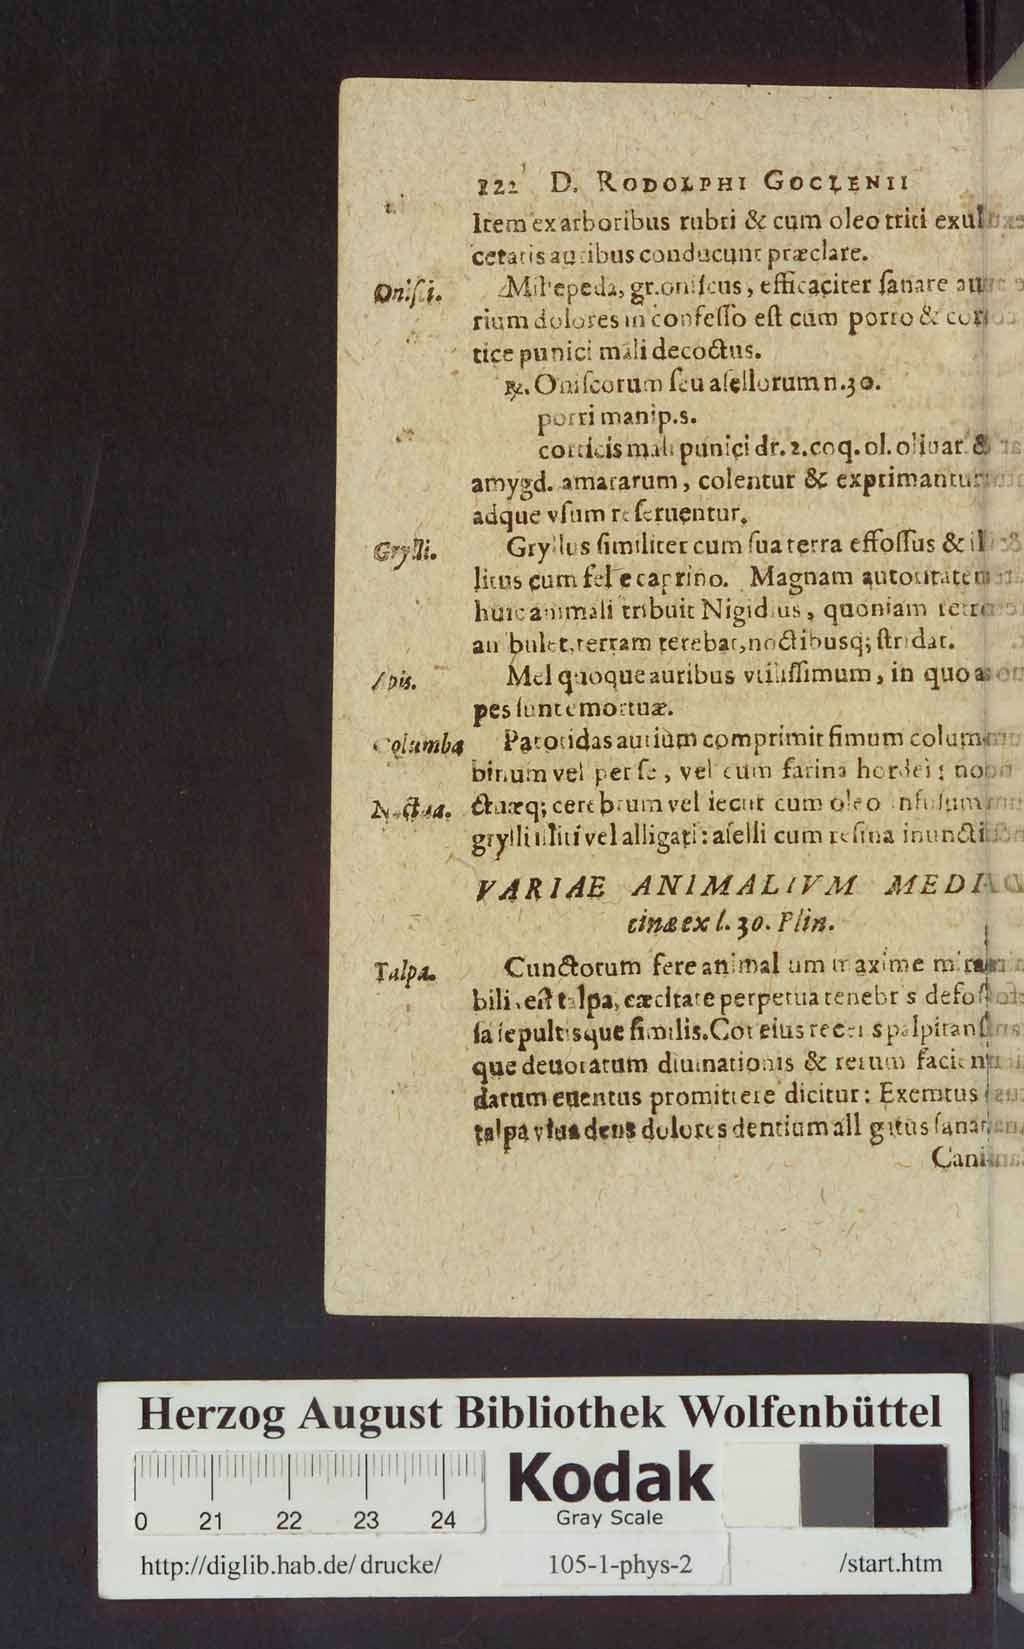 122 D. RODOLPHI GOCLENII
Item ex arboribus rubri & cum oleo triti exul
cetatis auribus conducunt præclare.
Onisci.
Millepeda, gr. oniſcus, efficaciter ſanare au
rium dolores in confeſſo eſt cum porro & cor
tice punici mali decoctus.
℞. Oniſcorum ſeu aſellorum n. 30.
porri manip. s.
corticis mali punici dr. 2. coq. ol. oliuar. &
amygd. amararum, colentur & exprimantur
adque vſum reſeruentur.
Grylli.
Gryllus ſimiliter cum ſua terra effoſſus & il
litus cum felle caprino. Magnam autoritatem
huic animali tribuit Nigidius, quoniam retro
ambulet, terram terebat, noctibusq; ſtridat.
Apis.
Mel quoque auribus vtiliſſimum, in quo a
pes ſunt emortuæ.
Columba
Parotidas aurium comprimit fimum colum
binum vel per ſe, vel cum farina hordei: no
Noctua.
ctuæq; cerebrum vel iecur cum oleo infuſum
grylli illiti vel alligati: aſelli cum reſina inuncti
VARIAE ANIMALIVM MEDI
cinæ ex l. 30. Plin.
Talpa.
Cunctorum fere animalium maxime mira
bilis eſt talpa, cæcitate perpetua tenebris defoſ
ſa ſepultisque ſimilis. Cor eius recens palpitans
que deuoratum diuinationis & rerum facien
darum euentus promittere dicitur: Exemtus
talpa viua dens dolores dentium alligatus ſanat.
Cani
Herzog August Bibliothek Wolfenbüttel
0 21 22 23 24
Kodak
Gray Scale
http://diglib.hab.de/drucke/ 105-1-phys-2 /start.htm